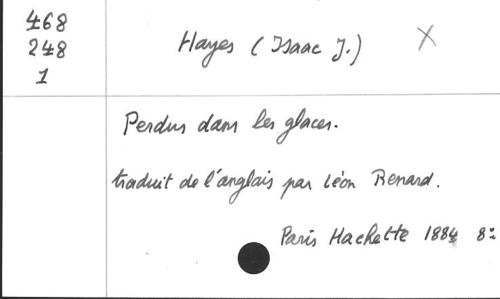 468
248
1
Hayes (Isaac J.) X
Perdus dans les glaces.
traduit de l'anglais par Léon Renard.
Paris Hachette 1884 8º